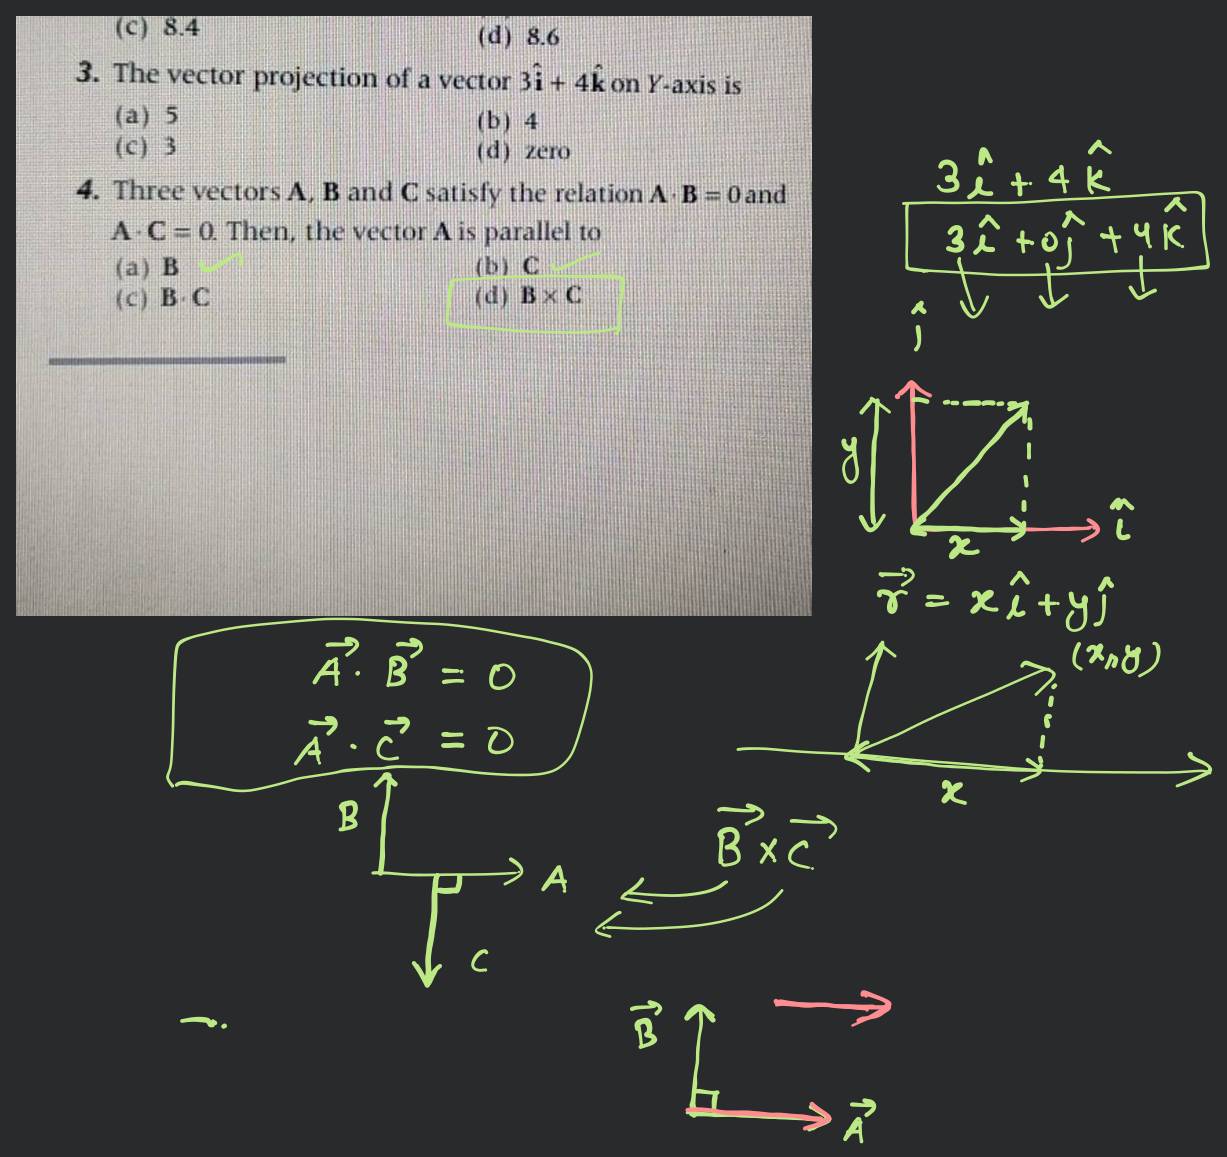 (c) 8.4 (d) 8.6
3. The vector projection of a vector 3î + 4k̂ on Y-axis is
(a) 5 (b) 4
(c) 3 (d) zero
4. Three vectors A, B and C satisfy the relation A · B = 0 and
A · C = 0. Then, the vector A is parallel to
(a) B (b) C
(c) B · C (d) B × C
3î + 4k̂
3î + 0ĵ + 4k̂
ĵ
y
x
î
r⃗ = xî + yĵ
(x, y)
x
A⃗ · B⃗ = 0
A⃗ · C⃗ = 0
B
A
C
B⃗ × C⃗
B⃗
A⃗